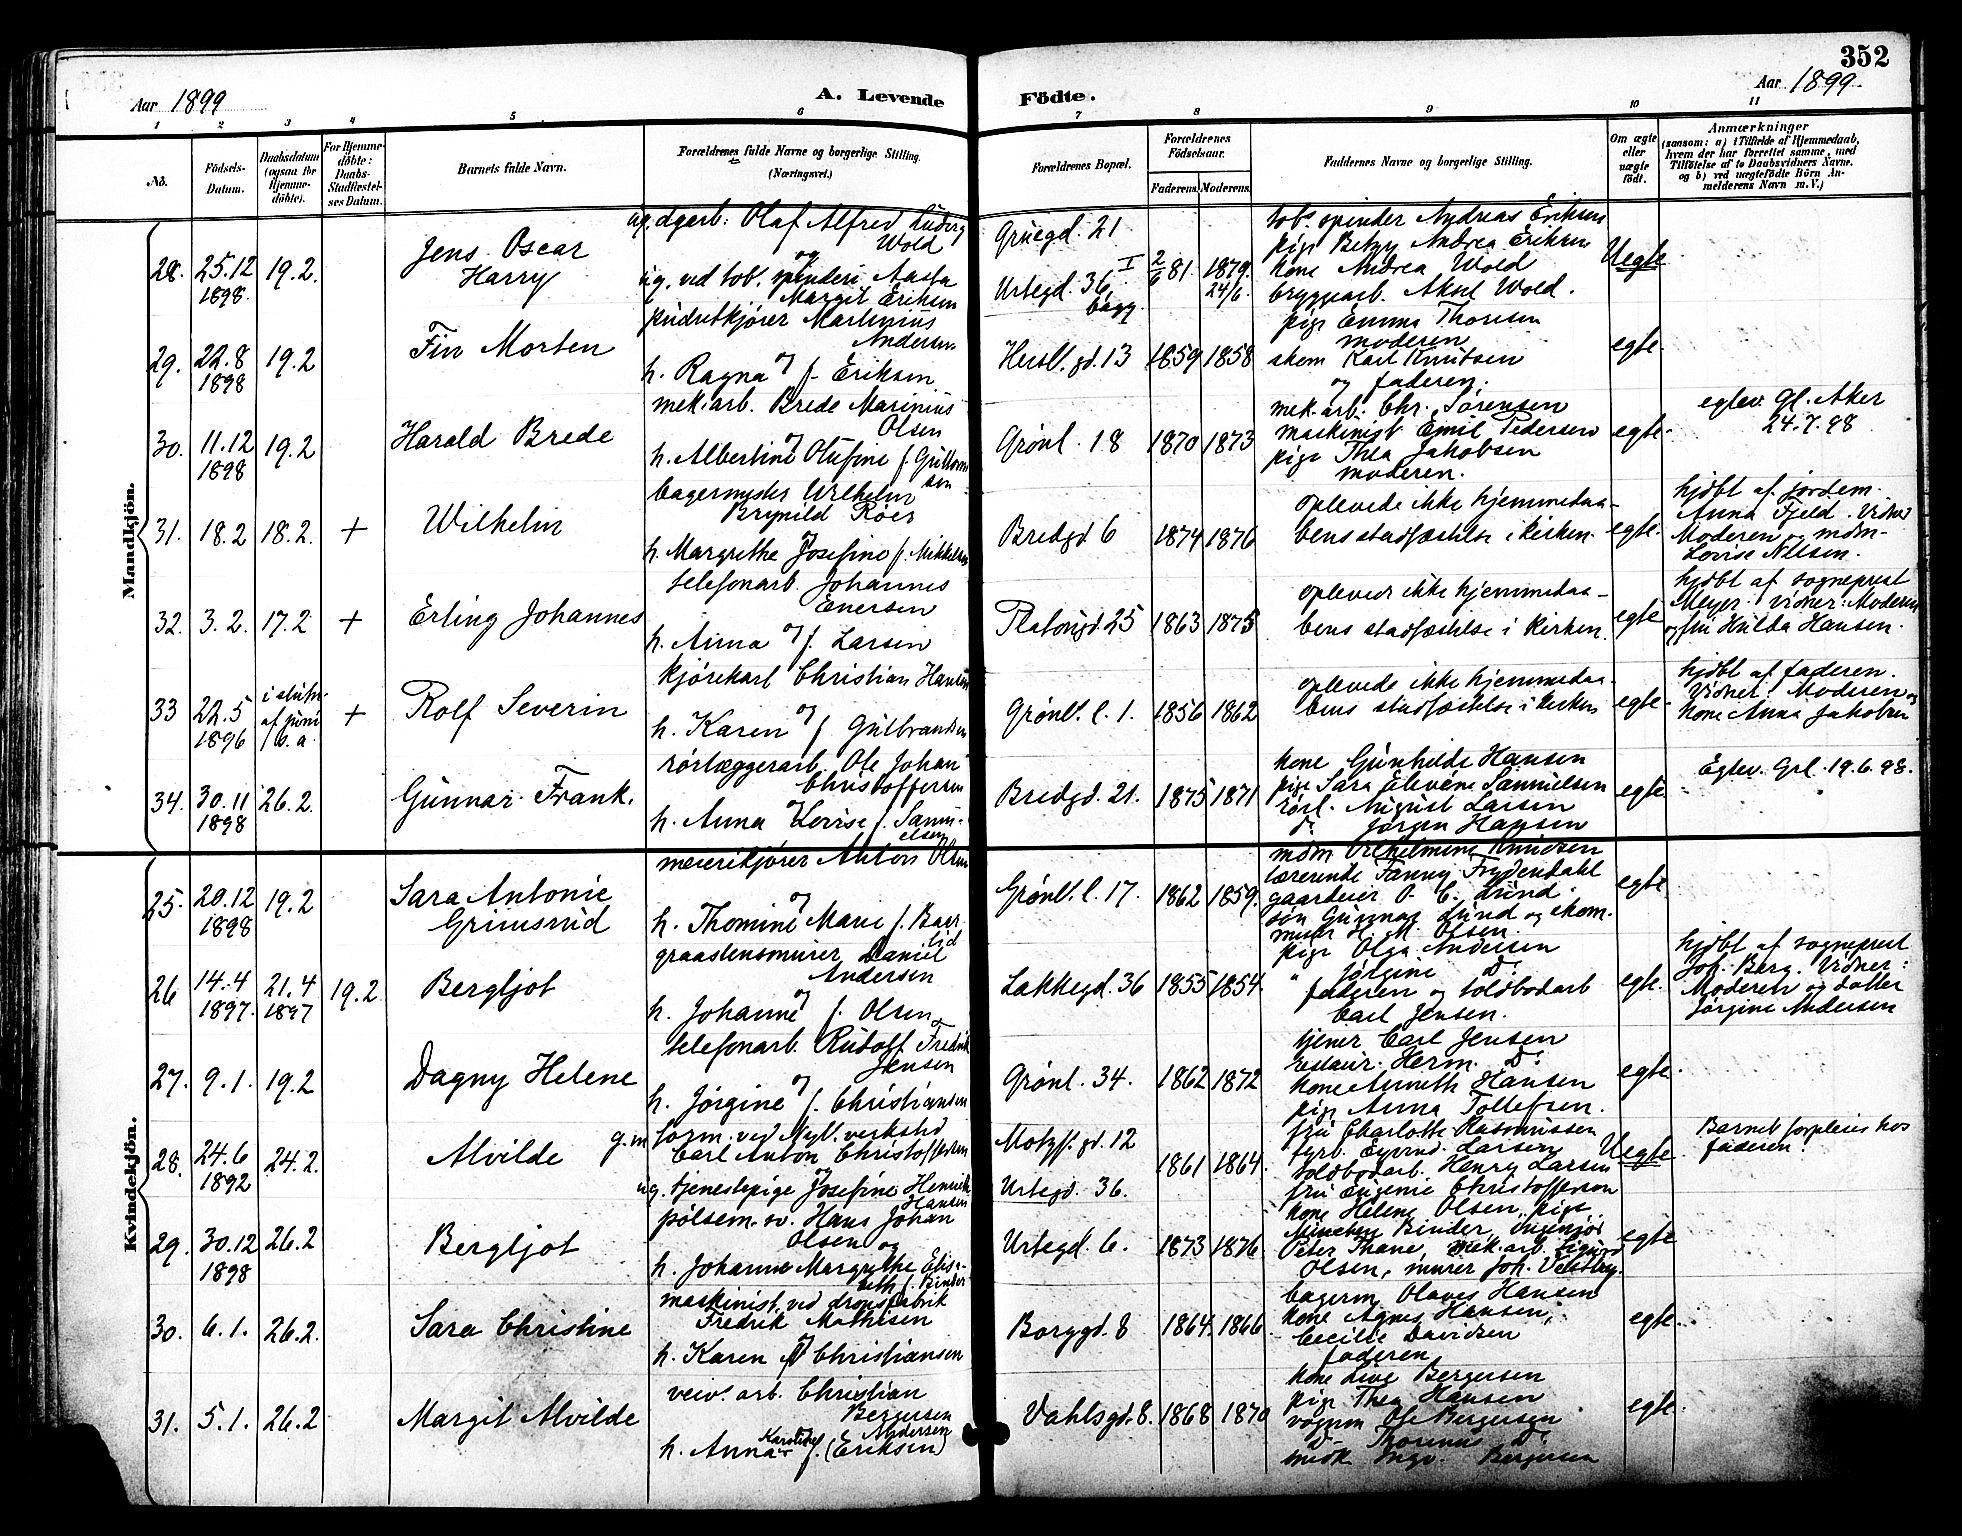 352
Aar 1899
A. Levende
Födte.
Aar 1899
1 2 3 4 5 6 7 8 9 10 11
No.
Födsels-Datum.
Daabsdatum (ogsaa for Hjemmedöbte).
For Hjemmedöbte: Daabs-Stadfæstelses Datum.
Barnets fulde Navn.
Forældrenes fulde Navne og borgerlige Stilling. (Næringsvei.)
Forældrenes Bopæl.
Forældrenes Födselsaar.
Faderens. Moderens.
Faddernes Navne og borgerlige Stilling.
Om ægte eller uægte födt.
Anmærkninger
(saasom: a) i Tilfælde af Hjemmedaab, hvem der har forrettet samme, med Tilföielse af to Daabsvidners Navne. og b) ved uægtefödte Börn Anmelderens Navn m. V.)
Mandkjön.
28. 25.12 1898. 19.2.
Jens Oscar
Harry
ug. dgarb. Olaf Alfred Ludvig
Wold
og
ug. ved tob. spinderi Aasta
Margit Eriksen
Gruegd. 21
Urtegd. 36, I
bagg.
2/6 81. 1879. 24/6.
tobs. spinder Andreas Eriksen
pige Betzy Andrea Eriksen
kone Andrea Wold
bryggearb. Aksel Wold.
Uegte
29. 22.8 1898 19.2
Fin Morten
pudretkjører Martinius
Andersen
og
h. Ragna f. Eriksen
Hersl. gd. 13 1859 1858
pige Emma Thoresen
moderen
skom Karl Knutsen
og faderen.
egte.
30. 11.12 1898 19.2
Harald Brede
mek. arb. Brede Marinius
Olsen
og
h. Albertine Olufine f. Gulbrandsen
Grønl. 18 1870 1873
mek. arb. Chr. Sørensen
maskinist Emil Pedersen
pige Thea Jakobsen
moderen.
egte.
egtev. Gl. Aker
24.7.98
31. 18.2 18.2. +
Wilhelm
bagermester Wilhelm
Brynild Roer
og
h. Margrethe Josefine f. Mikkelsen
Bredgd 6 1874 1876
oplevede ikke hjemmedaa-
bens stadfæstelse i kirken.
egte.
hjdbt af jordem.
Anna Fjeld. Vidner
Moderen og mdm.
Lovise Nilsen.
32. 3.2. 17.2 +
Erling Johannes
telefonarb. Johannes
Enersen
og
h. Anna f. Larsen
Platousgd. 25 1863 1875
oplevede ikke hjemmedaa-
bens stadfæstelse i kirken.
egte
hjdbt af sogneprest
Meyer. Vidner: Moderen
og fru Hulda Hansen.
33 22.5 1896 i slutn. af juni s. a. +
Rolf Severin
kjørekarl Christian Hansen
og
h. Karen f. Gulbrandsen
Grønl. l. 1. 1856 1862
oplevede ikke hjemmedaa-
bens stadfæstelse i kirken
egte.
hjdbt af faderen.
Vidner: Moderen og
kone Anna Jakobsen
34. 30.11 1898 26.2.
Gunnar Frank.
rørlæggerarb. Ole Johan
Christoffersen
h. Anna Lovise f. Samu-
elsen
Bredgd. 21. 1875 1871
kone Gunhilde Hansen
pige Sara Elevine Samuelsen
rørl. August Larsen
do. Jørgen Hansen
egte
Egtev. Grl. 19.6.98.
Kvindekjön.
25. 20.12 1898 19.2
Sara Antonie
Grimsrud
meierikjører Anton Olsen
og
h. Thomine Marie f.
Grønl. l. 17. 1862 1859.
mdm Vilhelmine Knudsen
lærerinde Fanny Frydendahl
gaardeier O. C. Lund.
søn Gunnar Lund og skom.
H. M. Olsen.
egte
26 14.4 1897. 21.4 1897 19.2.
Bergljot
graastensmurer Daniel
Andersen
og
h. Johanne f. Olsen
Lakkegd. 36 1855 1854.
pige Olga Andersen
" Jørgine Do.
faderen og toldbodarb
Carl Jensen.
egte.
hjdbt af sogneprest
Joh. Berg. Vidner:
Moderen og datter
Jørgine Andersen
27. 9.1. 19.2
Dagny Helene
telefonarb. Rudolf Fredrik
Jensen
og
h. Jørgine f. Christiansen
Grønl. 34. 1862 1872
tjener Carl Jensen
restaur. Herm. Do.
kone Anneth Hansen
pige Anna Tollefsen.
egte.
28. 24.6 1892 24.2.
Alvilde
g.m. form. ved Nyl. verksted
Carl Anton Christoffersen
og
ug. tjenestepige Josefine Henrik
Hansen
Motzf. gd. 12
Urtegd. 36.
1861 1864.
fru Charlotte Rasmussen
fyrb. Eyvind Larsen
toldbodarb. Henry Larsen
fru Eugenie Christoffersen
Uegte
Barnet forpleies hos
faderen.
29. 30.12 1898 26.2
Bergljot
pølsem. sv. Hans Johan
Olsen og
h. Johanne Margrethe Elisa-
beth f. Binder
Urtegd. 6. 1873 1876
kone Helene Olsen, pige
Binder, ingeniør
Peter Thane, mek. arb. Sigurd
Olsen, murer Joh. Vestby.
egte
30. 6.1. 26.2.
Sara Christine
maskinist ved dropsfabrik
Fredrik Mathisen
og
h. Karen f. Christiansen
Borggd. 8 1864. 1866
bagerm Olaves Hansen
kone Agnes Hansen,
Cecilie Davidsen
faderen
egte.
31. 5.1. 26.2
Margit Alvilde
veiv. arb. Christian
Bergersen
h. Anna Karoline f. (Eriksen) Andersen
Vahlsgd. 8. 1868 1870
kone Live Bergersen
pige Thea Hansen
vognm Ole Bergersen
Do Thorinus Do.
smedk Ingv. Bergersen
egte.